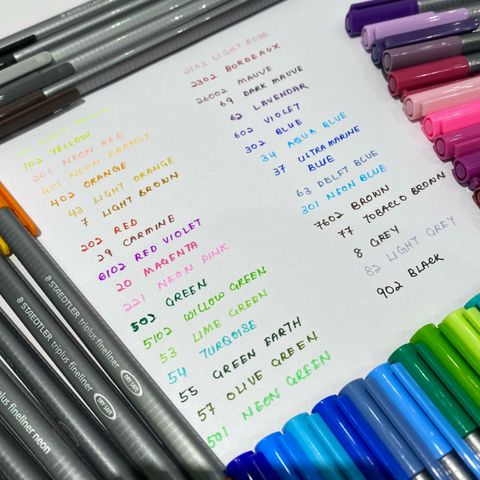 102 YELLOW
201 NEON RED
401 NEON ORANGE
402 ORANGE
43 LIGHT ORANGE
7 LIGHT BROWN
202 RED
29 CARMINE
6102 RED VIOLET
20 MAGENTA
221 NEON PINK
502 GREEN
5102 WILLOW GREEN
53 LIME GREEN
54 TURQOISE
55 GREEN EARTH
57 OLIVE GREEN
501 NEON GREEN
2102 LIGHT ROSE
2302 BORDEAUX
26002 MAUVE
69 DARK MAUVE
62 LAVENDAR
602 VIOLET
302 BLUE
34 AQUA BLUE
37 ULTRAMARINE
BLUE
63 DELFT BLUE
301 NEON BLUE
7602 BROWN
77 TOBACCO BROWN
8 GREY
82 LIGHT GREY
902 BLACK
STAEDTLER triplus fineliner DRY SAFE
STAEDTLER triplus fineliner DRY SAFE
triplus fineliner
triplus fineliner neon